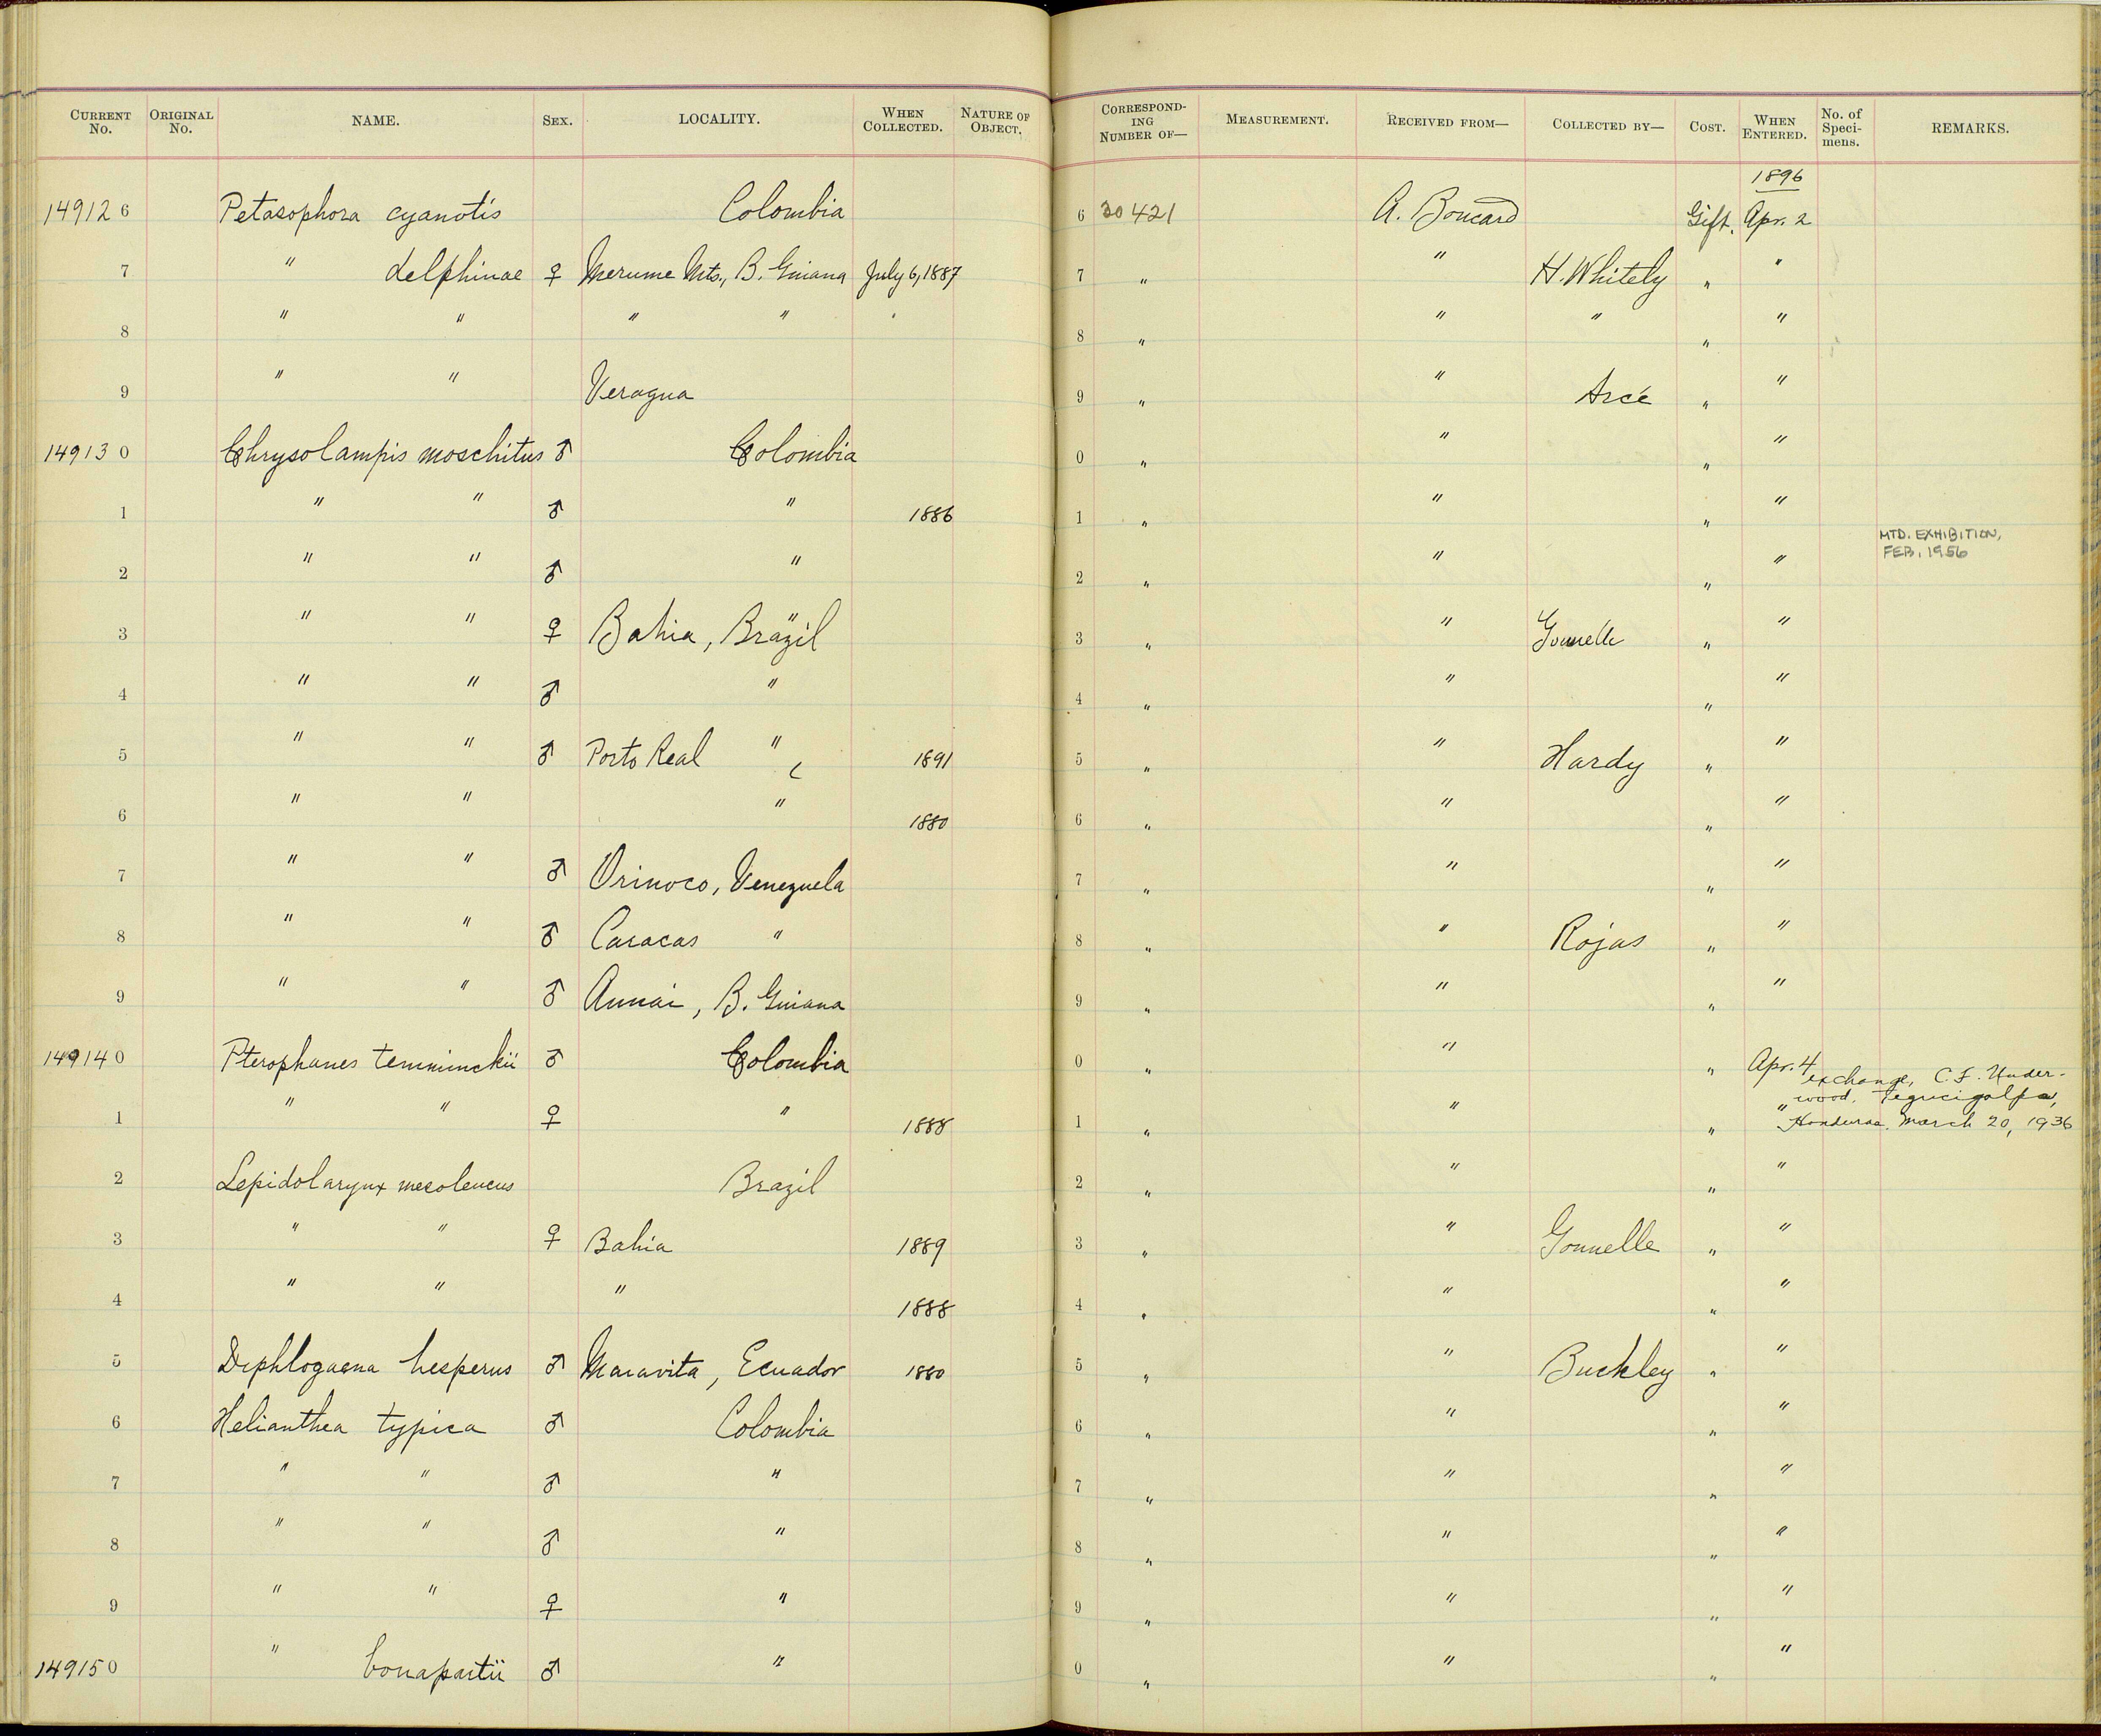 CURRENT No. ORIGINAL No. NAME. SEX. LOCALITY. WHEN COLLECTED. NATURE OF OBJECT. CORRESPONDING NUMBER OF— MEASUREMENT. RECEIVED FROM— COLLECTED BY— COST. WHEN ENTERED. No. of Specimens. REMARKS.
1896
149126 Petasophora cyanotis Colombia 6 30421 A. Boucard Gift. Apr. 2
7 " delphinae ♀ Merume Mts., B. Guiana July 6, 1887 7 " " H. Whitely " "
8 " " " " ' 8 " " " " "
9 " " Veragua 9 " " Arcé " "
149130 Chrysolampis moschitus ♂ Colombia 0 " " " "
1 " " ♂ " 1886 1 " " " "
2 " " ♂ " 2 " " " " MTD. EXHIBITION,
FEB, 1956
3 " " ♀ Bahia, Brazil 3 " " Gounelle " "
4 " " ♂ " 4 " " " "
5 " " ♂ Porto Real " 1891 5 " " Hardy " "
6 " " " 1880 6 " " " "
7 " " ♂ Orinoco, Venezuela 7 " " " "
8 " " ♂ Caracas " 8 " " Rojas " "
9 " " ♂ Annai, B. Guiana 9 " " " "
149140 Pterophanes temminckii ♂ Colombia 0 " " " Apr. 4
exchange, C.F. Under-
wood, Tegucigalpa,
1 " " ♀ " 1888 1 " " " " Honduras. March 20, 1936
2 Lepidolarynx mesoleucus Brazil 2 " " " "
3 " " ♀ Bahia 1889 3 " " Gounelle " "
4 " " " 1888 4 " " " "
5 Diphlogaena hesperus ♂ Maravita, Ecuador 1880 5 " " Buckley " "
6 Helianthea typica ♂ Colombia 6 " " " "
7 " " ♂ " 7 " " " "
8 " " ♂ " 8 " " " "
9 " " ♀ " 9 " " " "
149150 " bonapartii ♂ " 0 " " " "